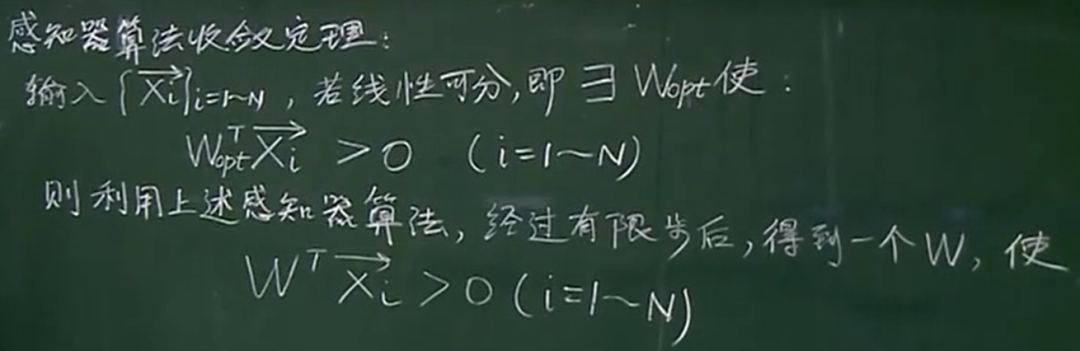 感知器算法收敛定理:
输入{X⃗i}i=1~N,若线性可分,即∃Wopt使:
Wopt^T X⃗i > 0 (i=1~N)
则利用上述感知器算法,经过有限步后,得到一个W,使
W^T X⃗i > 0 (i=1~N)